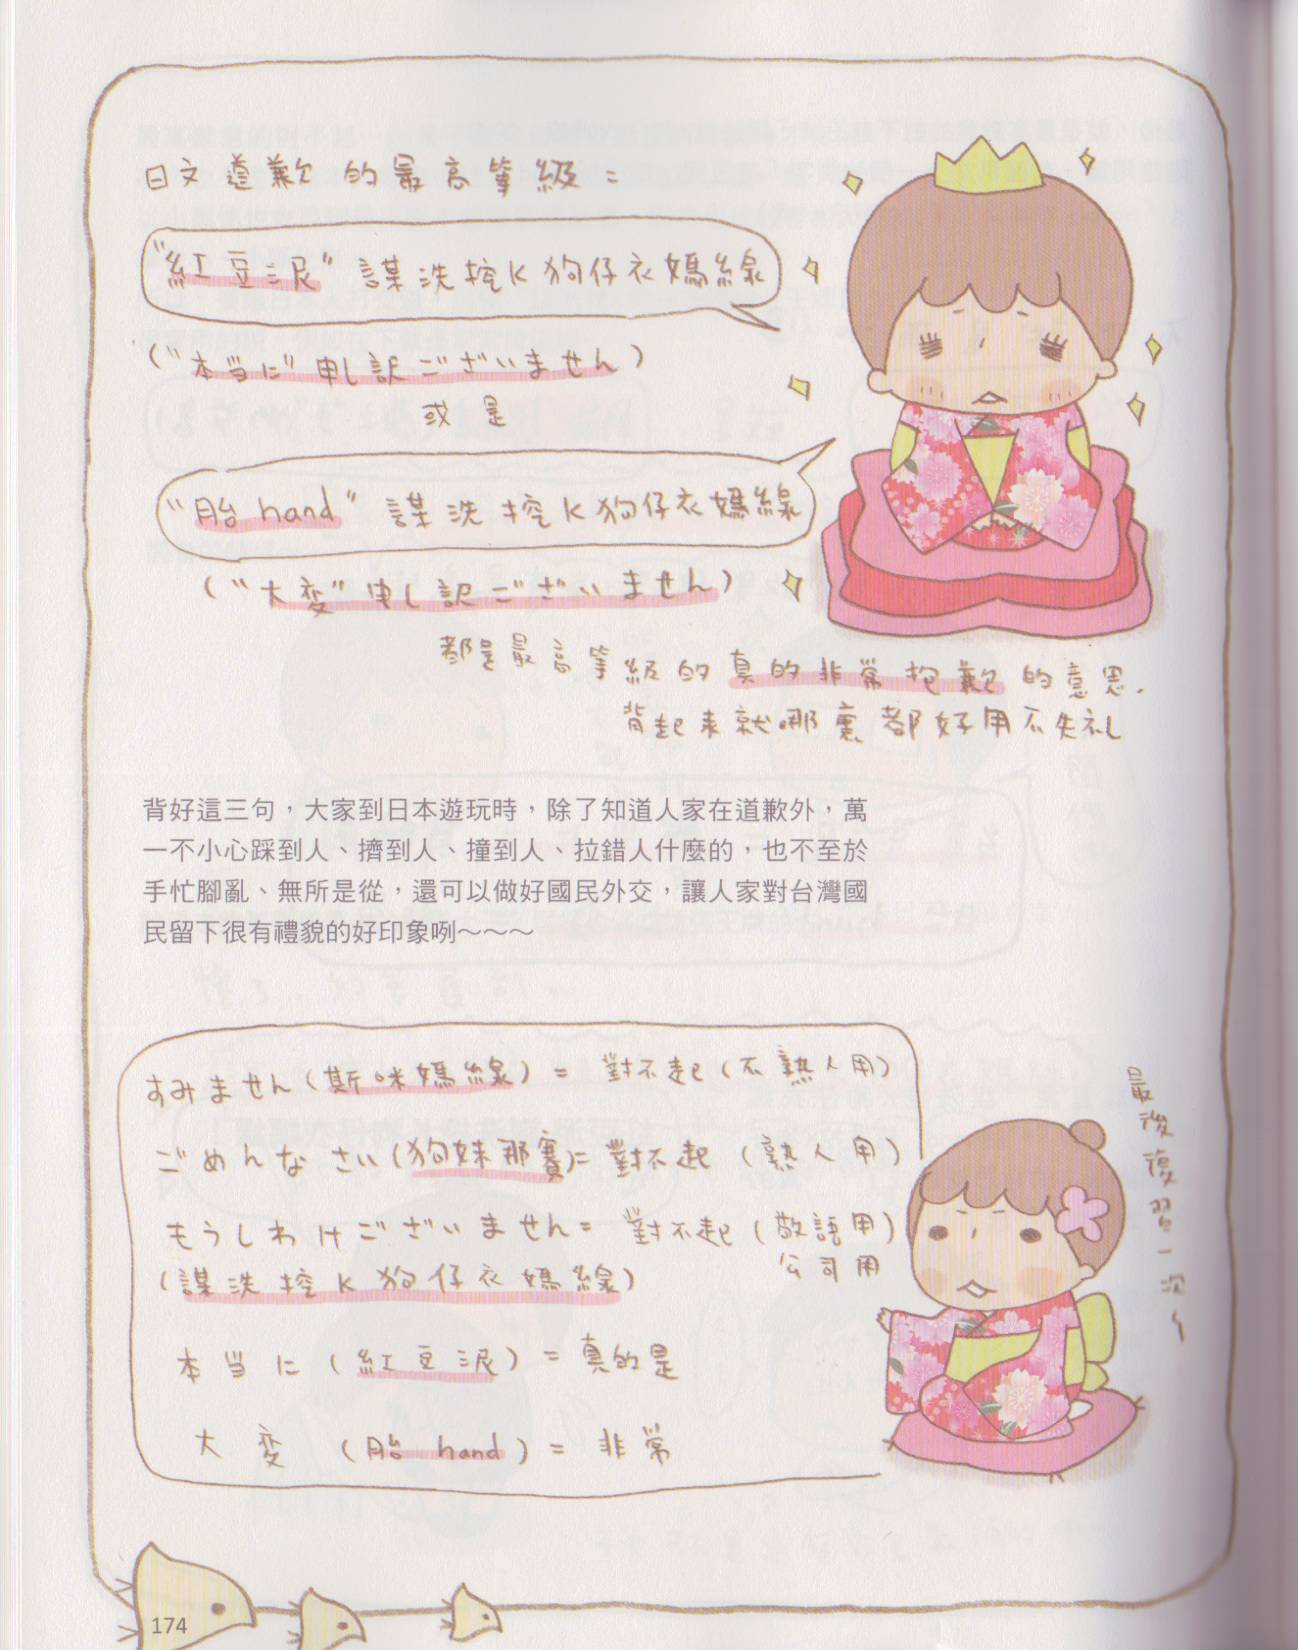 日文道歉的最高等級：
"紅豆泥" 謀洗挖K狗仔衣媽線
("本当に" 申し訳ございません)
或是
"胎 hand" 謀洗挖K狗仔衣媽線
("大変" 申し訳ございません)
都是最高等級的真的非常抱歉的意思.
背起來就哪裏都好用不失礼
背好這三句，大家到日本遊玩時，除了知道人家在道歉外，萬
一不小心踩到人、擠到人、撞到人、拉錯人什麼的，也不至於
手忙腳亂、無所是從，還可以做好國民外交，讓人家對台灣國
民留下很有禮貌的好印象咧～～～
最後復習一次～
すみません(斯咪媽線) = 對不起(不熟人用)
ごめんなさい(狗妹那賽) = 對不起 (熟人用)
もうしわけございません = 對不起 (敬語用)
公司用
(謀洗挖K狗仔衣媽線)
本当に (紅豆泥) = 真的是
大変 (胎 hand) = 非常
174